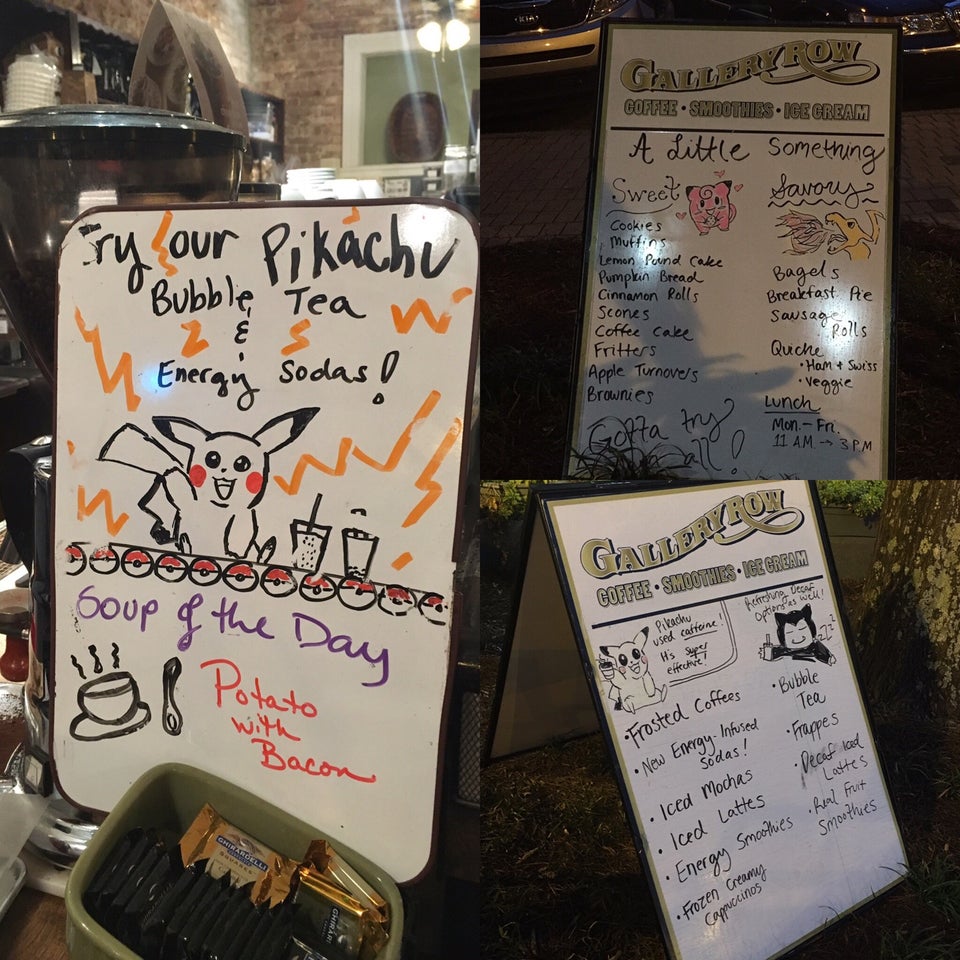 Try our Pikachu
Bubble Tea
&
Energy Sodas!
Soup of the Day
Potato
with
Bacon
GHIRARDELLI
GHIRAR
GALLERY ROW
COFFEE • SMOOTHIES • ICE CREAM
A Little Something
Sweet
Cookies
Muffins
Lemon Pound Cake
Pumpkin Bread
Cinnamon Rolls
Scones
Coffee Cake
Fritters
Apple Turnovers
Brownies
Savory
Bagels
Breakfast Pie
Sausage
Rolls
Quiche
• Ham + Swiss
• Veggie
Lunch
Mon. - Fri.
11 A.M. → 3 P.M
Gotta try
all!
GALLERY ROW
COFFEE • SMOOTHIES • ICE CREAM
Pikachu
used caffeine!
It's super
effective!
• Frosted Coffees
• New Energy Infused
Sodas!
• Iced Mochas
• Iced Lattes
• Energy Smoothies
• Frozen Creamy
Cappuccinos
Refreshing Decaf
Options as well!
zzz
• Bubble
Tea
• Frappes
• Decaf Iced
Lattes
• Real Fruit
Smoothies